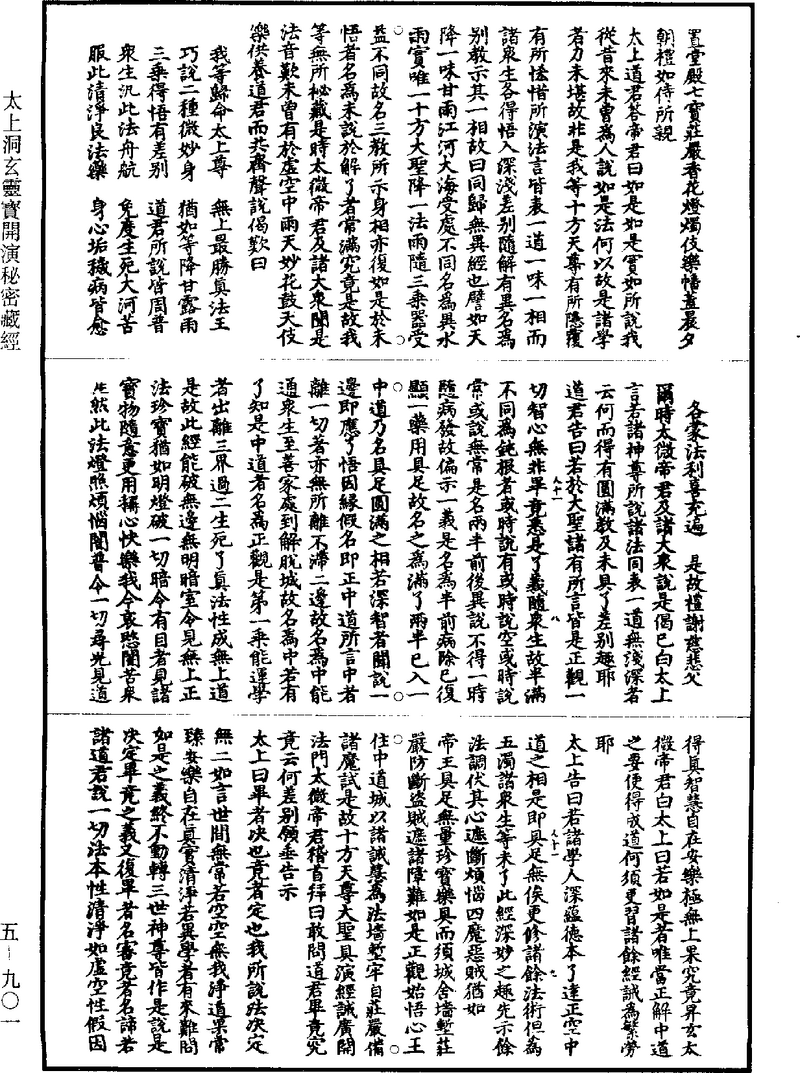 置堂殿七寶莊嚴香花燈燭伎樂幡蓋晨夕
朝禮如侍所親
太上道君答帝君曰如是如是實如所說我
從昔來未曾為人說如是法何以故是諸學
者力未堪故非是我等十方天尊有所隱覆
有所恡惜所演法言皆表一道一味一相而
諸衆生各得悟入深淺差別隨解有異名為
別教示其一相故曰同歸無異經也譬如天
降一味甘雨江河大海受處不同名為異水
雨實唯一十方大聖降一法雨隨三乘器受
益不同故名三教所示身相亦復如是於未
悟者名為未說於解了者常滿究竟是故我
等無所秘藏是時太微帝君及諸大衆聞是
法音歎未曾有於虛空中雨天妙花鼓天伎
樂供養道君而共齊聲說偈歎曰
我等歸命太上尊　無上最勝真法王
巧說二種微妙身　猶如等降甘露雨
三乘得悟有差別　道君所說皆周普
衆生汎此法舟航　免度生死大河苦
服此清淨良法藥　身心垢穢病皆愈
各蒙法利喜充遍　是故禮謝慈悲父
爾時太微帝君及諸大衆說是偈已白太上
言若諸神尊所說諸法同表一道無淺深者
云何而得有圓滿教及未具了差別趣耶
道君告曰若於大聖諸有所言皆是正觀一
切智心無非畢竟悉是了義隨衆生故半滿
不同為鈍根者或時說有或時說空或時說
常或說無常是名兩半前後異說不得一時
隨病發故偏示一義是名為半前病除已復
顯一藥用具足故名之為滿了兩半已入一
中道乃名具足圓滿之相若深智者聞說一
邊即應了悟因緣假名即正中道所言中者
離一切著亦無所離不滯二邊故名為中能
通衆生至善家處到解脫城故名為中若有
了知是中道者名為正觀是第一乘能運學
者出離三界過二生死了真法性成無上道
是故此經能破無邊無明暗室令見無上正
法珍寶猶如明燈破一切暗令有目者見諸
寶物隨意更用稱心快樂我今哀愍闇苦衆
生然此法燈照煩惱闇普令一切尋光見道
得真智慧自在安樂極無上果究竟昇玄太
微帝君白太上曰若如是者唯當正解中道
之要便得成道何須更習諸餘經誡為繁勞
耶
太上告曰若諸學人深蘊德本了達正空中
道之相是即具足無俟更修諸餘法術但為
五濁諸衆生等未了此經深妙之趣先示餘
法調伏其心遮斷煩惱四魔惡賊猶如
帝王具足無量珍寶樂具而須城舍墻塹莊
嚴防斷盜賊遮諸障難如是正觀始悟心王
住中道城以諸誠慧為法墻塹牢自莊嚴備
諸魔試是故十方天尊大聖具演經誡廣開
法門太微帝君稽首拜曰敢問道君畢竟究
竟云何差別願垂告示
太上曰畢者決也竟者定也我所說法決定
無二如言世間無常若空空無我淨道果常
臻安樂自在真實清淨若異學者有來難問
如是之義終不動轉三世神尊皆作是說是
決定畢竟之義又復畢者名審竟者名諦若
諸道君說一切法本性清淨如虛空性假因
太上洞玄靈寶開演秘密藏經
五－九〇一